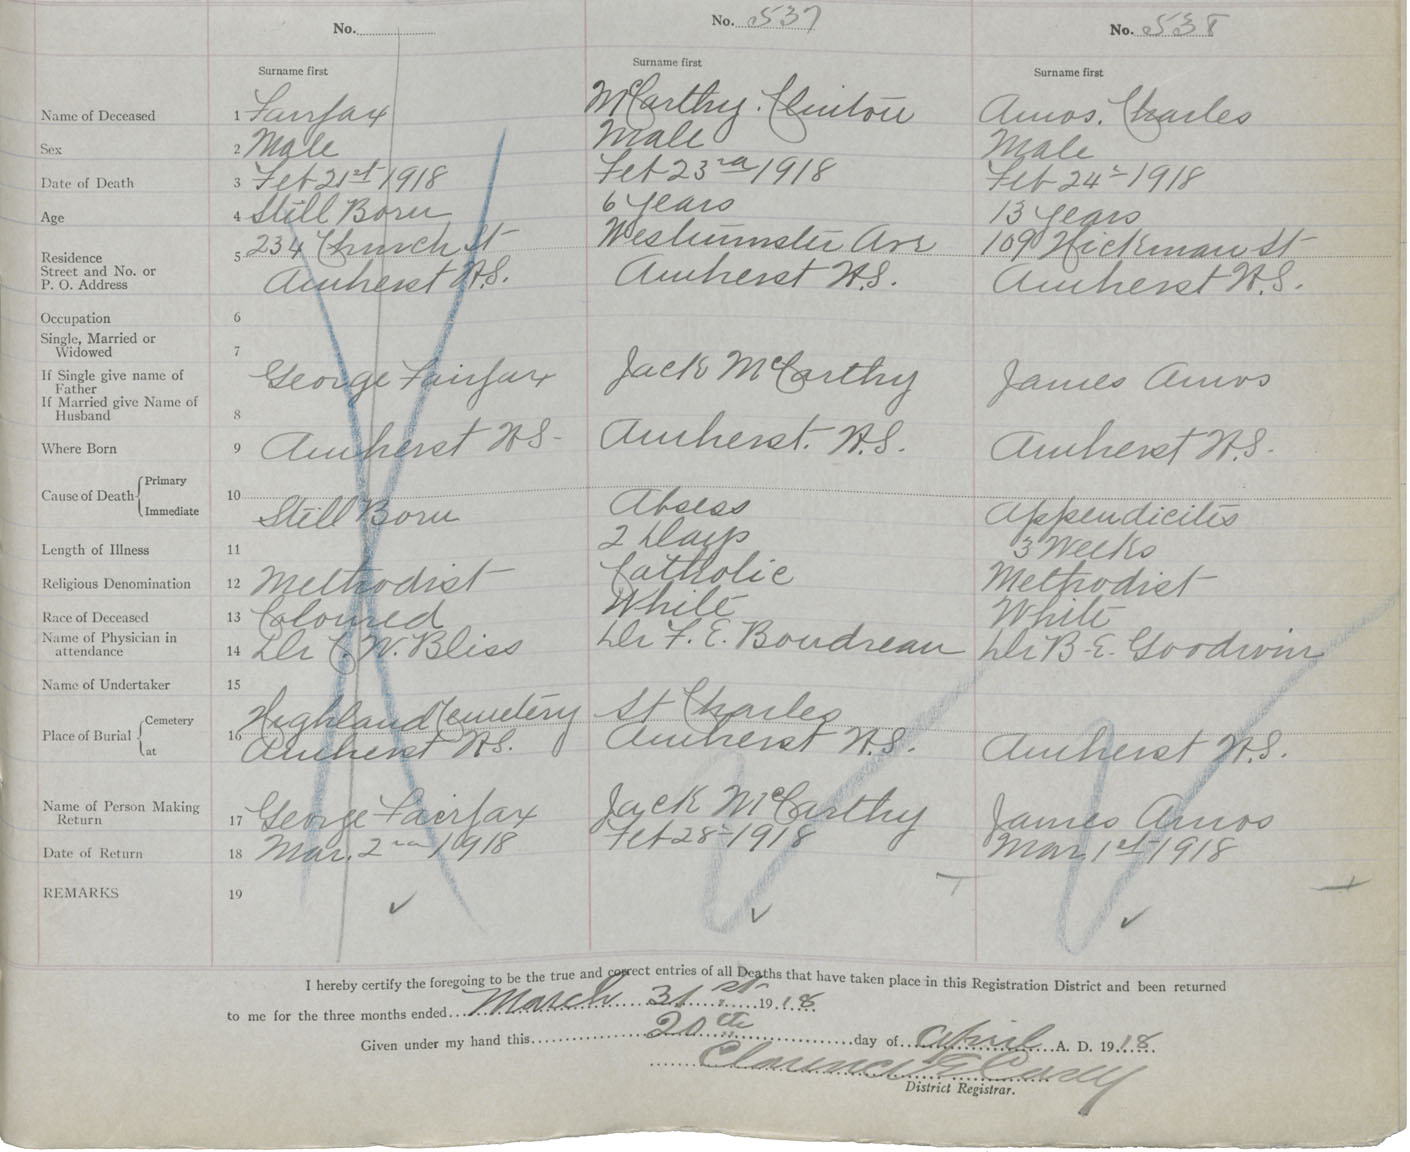 No. No. 537 No. 538
Surname first Surname first Surname first
Name of Deceased 1 Fairfax McCarthy. Clinton Amos. Charles
Sex 2 Male Male Male
Date of Death 3 Feb 21st 1918 Feb 23rd 1918 Feb 24th 1918
Age 4 Still Born 6 years 13 years
Residence 5 234 Church St Westminster Ave 109 Hickman St
Street and No. or
P. O. Address Amherst N.S. Amherst N.S. Amherst N.S.
Occupation 6
Single, Married or
Widowed 7
If Single give name of
Father George Fairfax Jack McCarthy James Amos
If Married give Name of
Husband 8
Where Born 9 Amherst N.S- Amherst. N.S. Amherst N.S.
Cause of Death Primary 10
Immediate Still Born Absess Appendicites
Length of Illness 11 2 Days 3 Weeks
Religious Denomination 12 Methodist Catholic Methodist
Race of Deceased 13 Coloured White White
Name of Physician in
attendance 14 Dr C. W. Bliss Dr F. E. Boudreau Dr B-E. Goodwin
Name of Undertaker 15
Place of Burial Cemetery 16 Highland Cemetery St Charles
at Amherst N.S. Amherst N.S. Amherst N.S.
Name of Person Making
Return 17 George Fairfax Jack McCarthy James Amos
Date of Return 18 Mar. 2nd 1918 Feb 28th 1918 Mar 1st 1918
REMARKS 19
I hereby certify the foregoing to be the true and correct entries of all Deaths that have taken place in this Registration District and been returned
to me for the three months ended March 31st 1918
Given under my hand this 20th day of April A. D. 1918.
Clarence E Casey
District Registrar.